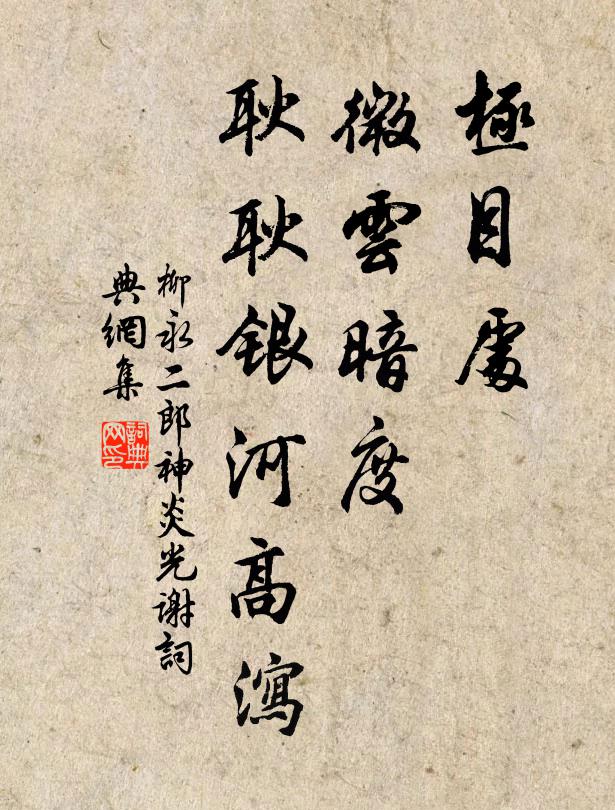 極目處
微雲暗度
耿耿銀河高瀉
柳永二郎神炎光謝詞
典網集
詞典網印